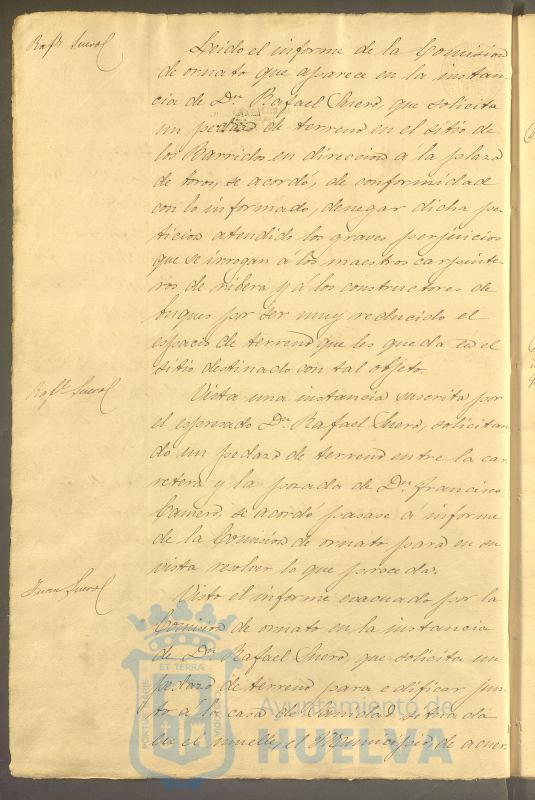 Rafl. Suero
Leido el informe de la Comision
de ornato que aparece en la instan-
cia de Dn. Rafael Suero, que solicita
un pedazo de terreno en el sitio de
los Barridos en direccion a la plaza
de toros, se acordó, de conformidad
con lo informado, denegar dicha pe-
ticion atendido los graves perjuicios
que se irrogan á los maestros carpinte-
ros de ribera y á los constructores de
buques por ser muy reducido el
espacio de terreno que les queda en el
sitio destinado con tal objeto.
Rafl. Suero
Vista una instancia suscrita por
el espresado Dn. Rafael Suero, solicitan-
do un pedazo de terreno entre la car-
retera y la posada de Dn. Francisco
Camero, se acordó pasase á informe
de la Comision de ornato para en su
vista resolver lo que proceda.
Juan Suero
Visto el informe evacuado por la
Comision de ornato en la instancia
de Dn. Rafael Suero que solicita un
pedazo de terreno para edificar jun-
to á la casa de Sanidad situada
en el muelle, el Municipio de acuer-
ET TERRÆ
Ayuntamiento de
HUELVA